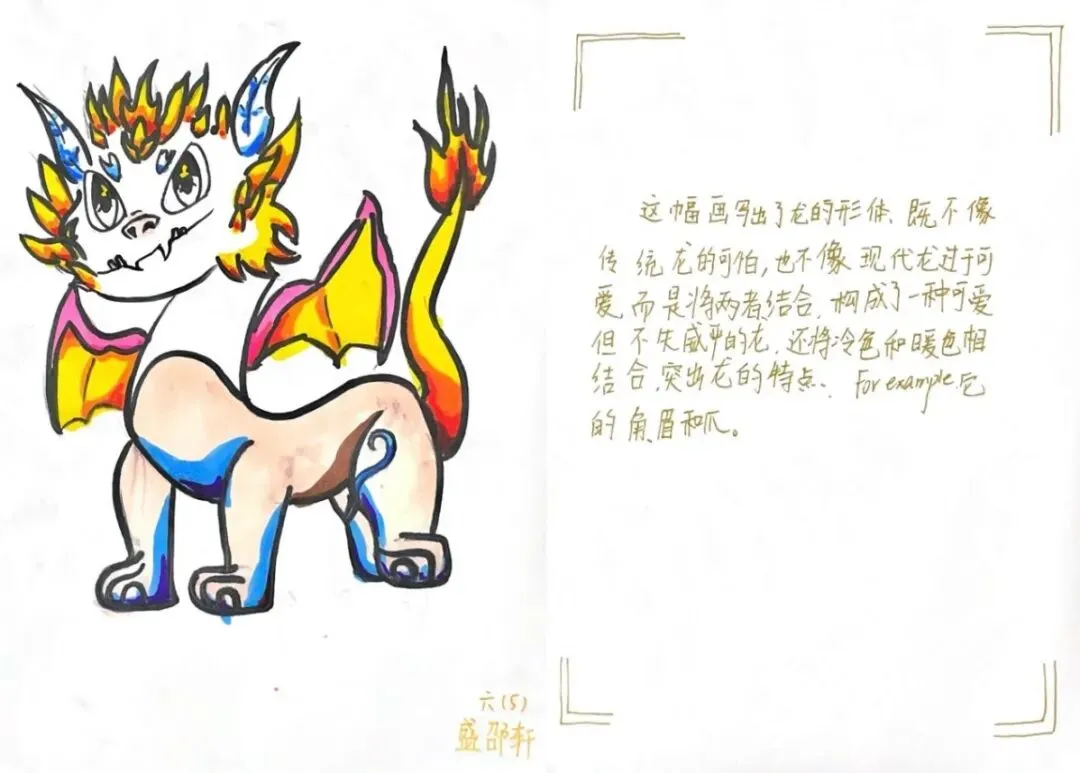 六(5)
盛邵轩
这幅画写出了龙的形体、既不像
传统龙的可怕,也不像现代龙过于可
爱,而是将两者结合,构成了一种可爱
但不失威严的龙,还将冷色和暖色相
结合,突出龙的特点、For example,它
的角、眉和爪。